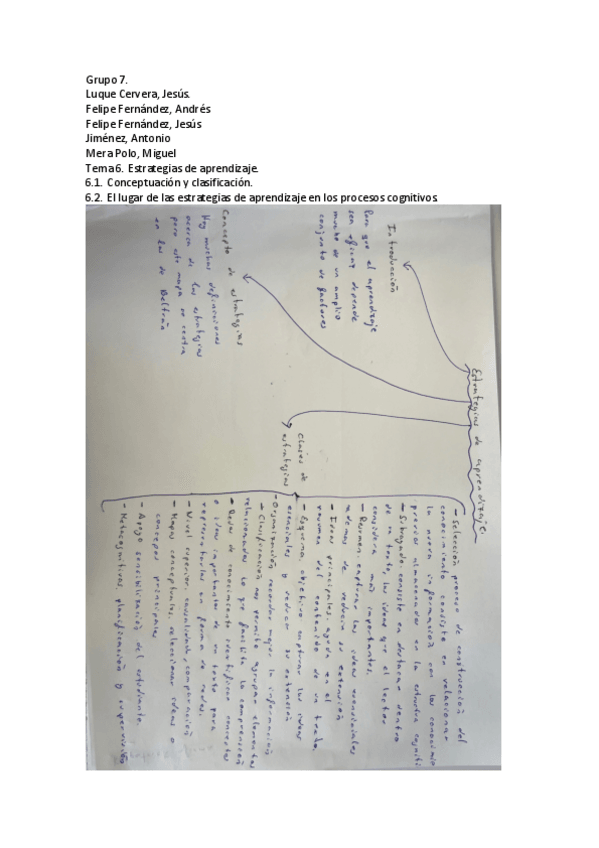 Grupo 7.
Luque Cervera, Jesús.
Felipe Fernández, Andrés
Felipe Fernández, Jesús
Jiménez, Antonio
Mera Polo, Miguel
Tema 6. Estrategias de aprendizaje.
6.1. Conceptuación y clasificación.
6.2. El lugar de las estrategias de aprendizaje en los procesos cognitivos.
Estrategias de aprendizaje
Introducción
Para que el aprendizaje
sea eficaz depende
mucho de un amplio
conjunto de factores
Concepto de estrategias
Hay muchas definiciones
acerca de las estrategias
pero este mapa se centra
en las de Beltrán
Clases de
estrategias
- Selección proceso de construcción del
conocimiento consiste en relacionar
la nueva información con los conocimie
previos almacenados en la estructra cogniti
- Subrayado: consiste en destacar dentro
de un texto, las ideas que el lector
considera más importantes.
- Resumen: capturar las ideas esenciales
además de reducir su extensión
- Ideas principales: ayuda en el
resumen del contenido de un texto,
- Esquema: objetivo capturar las ideas
esenciales y reducir su extensión
- Organización: recordar mejor la información
- Clasificación nos permite agrupar elementos
relacionados lo que facilita la comprensión
- Redes de conocimiento identificar conceptos
o ideas importantes de un texto para
representarlas en forma de redes.
- Nivel superior, causalidad, comparación
- Mapas conceptuales, seleccionar ideas o
conceptos principales
- Apoyo sensibilización del estudiante.
- Metacognitivas, planificación y supervisión